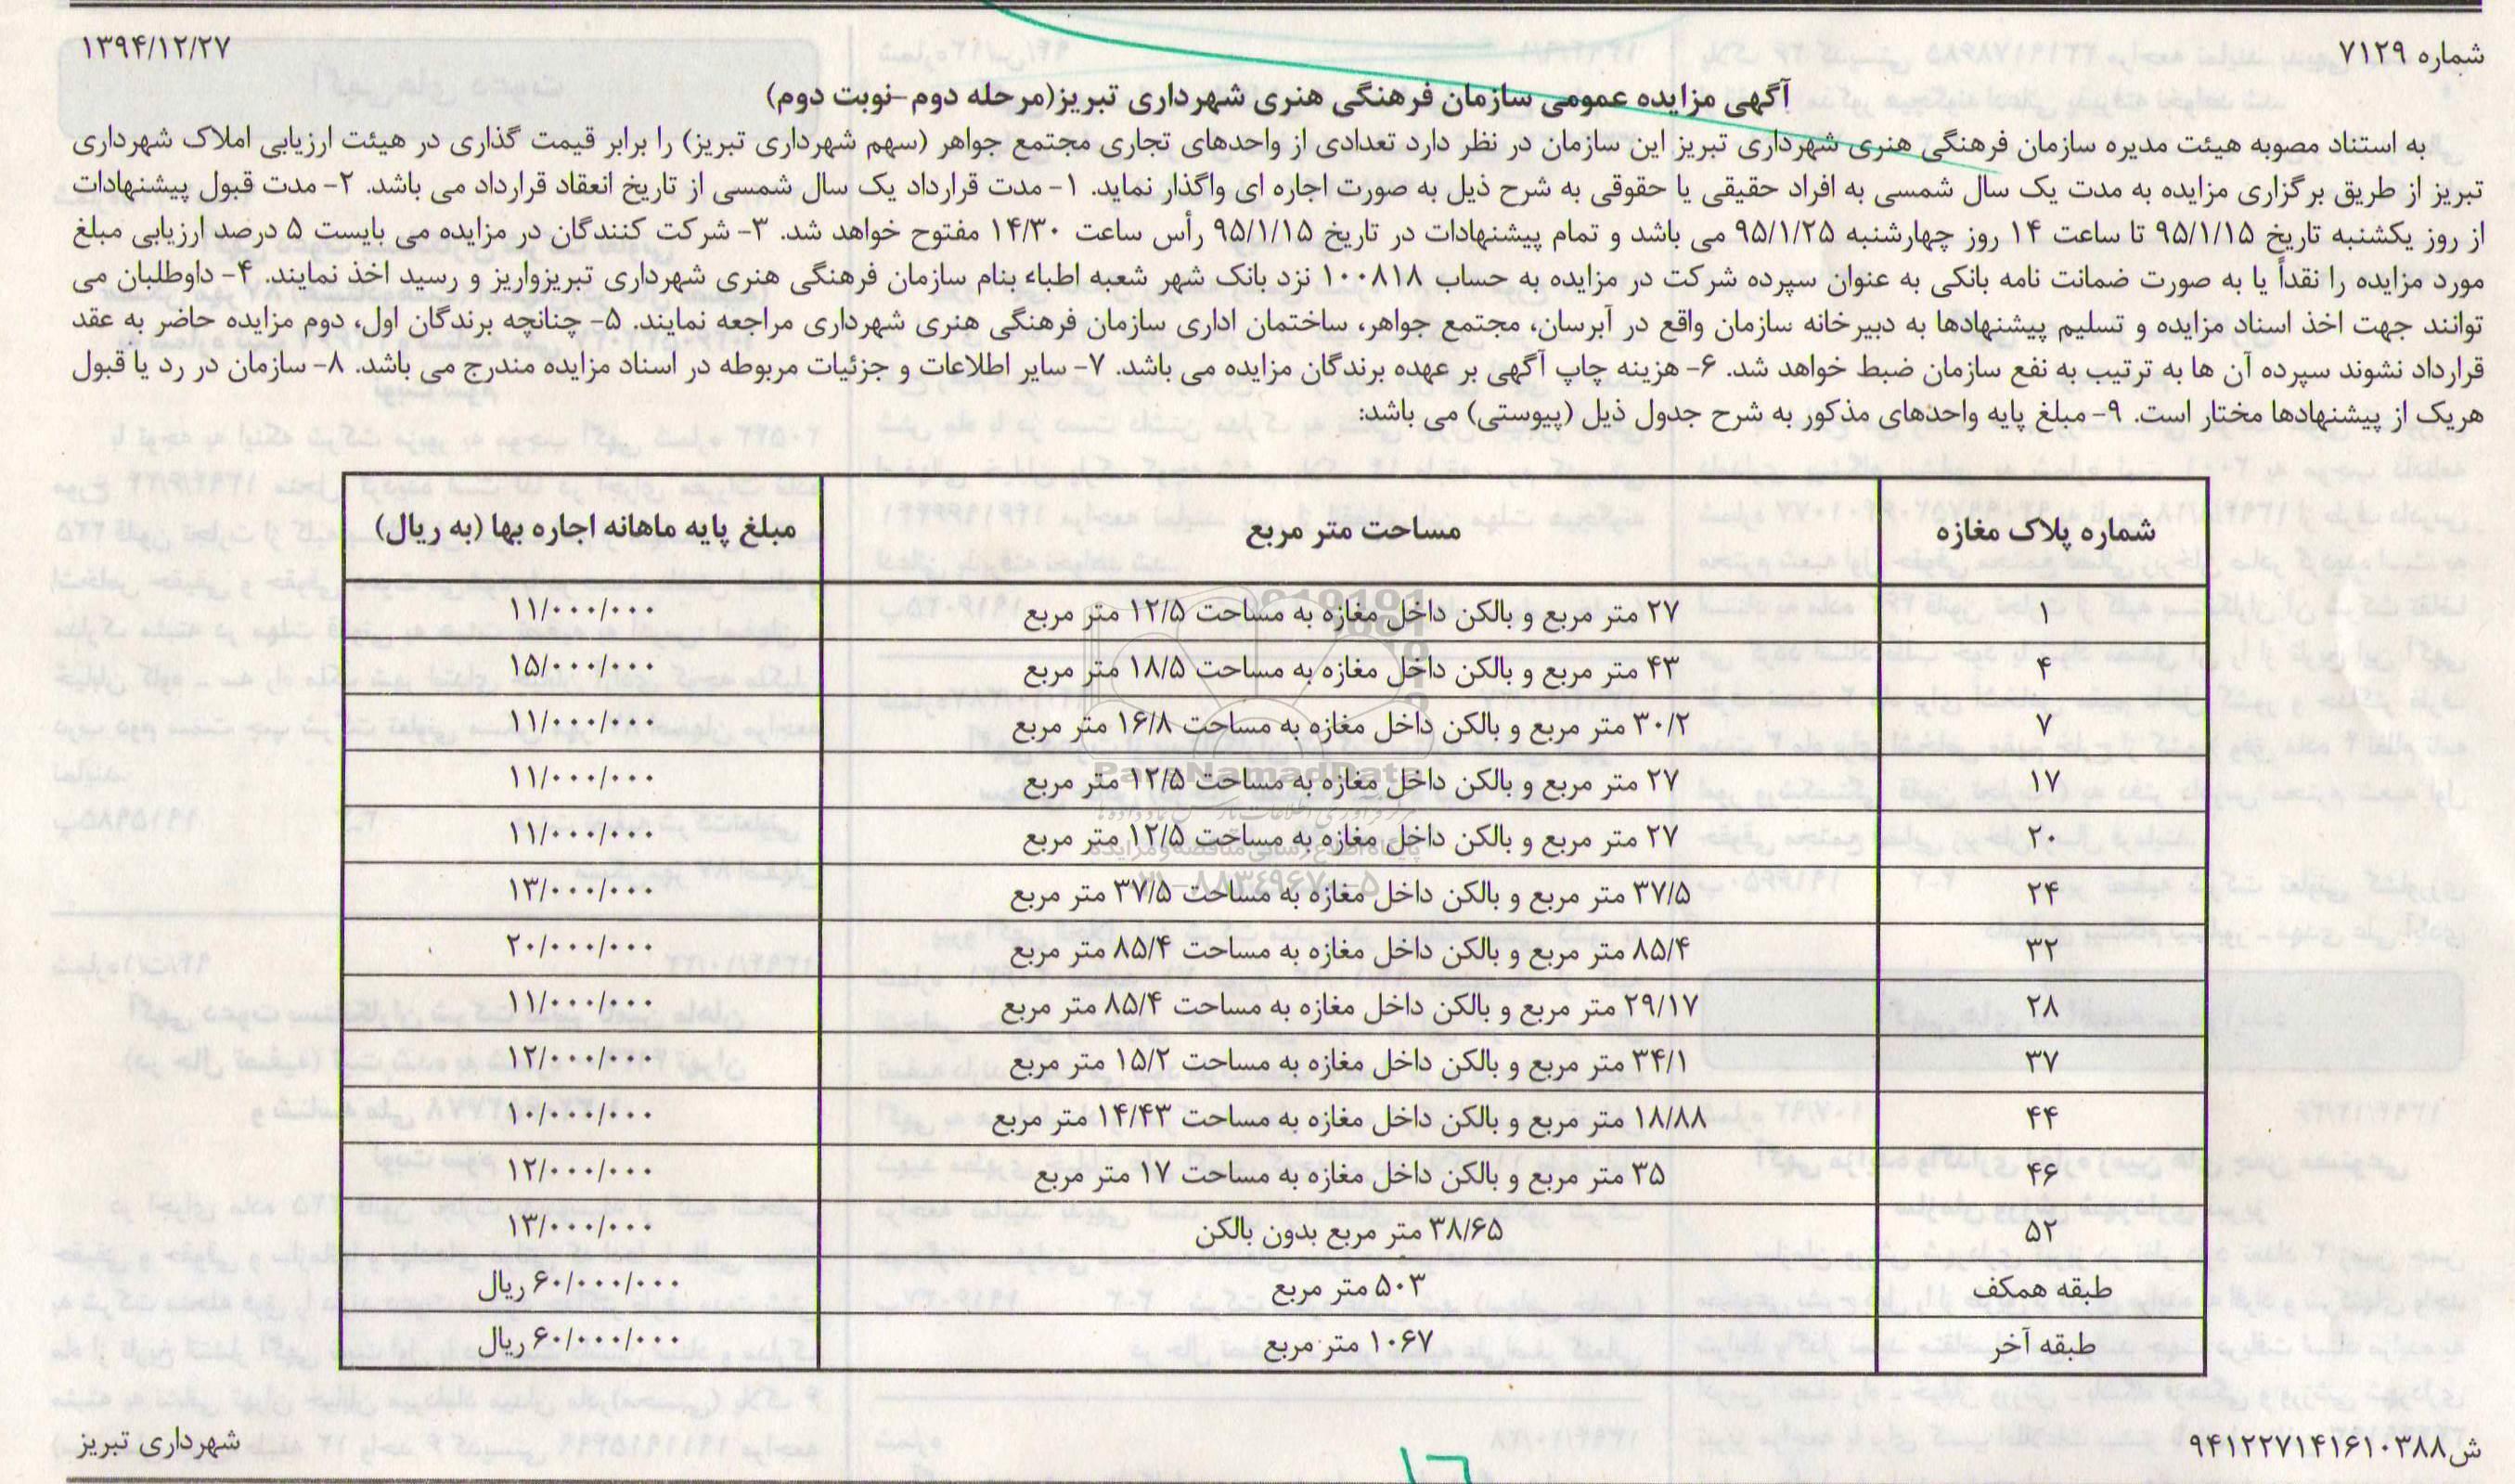 شماره ۷۱۲۹
۱۳۹۴/۱۲/۲۷
آگهی مزایده عمومی سازمان فرهنگی هنری شهرداری تبریز(مرحله دوم-نوبت دوم)
به استناد مصوبه هیئت مدیره سازمان فرهنگی هنری شهرداری تبریز این سازمان در نظر دارد تعدادی از واحدهای تجاری مجتمع جواهر (سهم شهرداری تبریز) را برابر قیمت گذاری در هیئت ارزیابی املاک شهرداری
تبریز از طریق برگزاری مزایده به مدت یک سال شمسی به افراد حقیقی یا حقوقی به شرح ذیل به صورت اجاره ای واگذار نماید. ۱- مدت قرارداد یک سال شمسی از تاریخ انعقاد قرارداد می باشد. ۲- مدت قبول پیشنهادات
از روز یکشنبه تاریخ ۹۵/۱/۱۵ تا ساعت ۱۴ روز چهارشنبه ۹۵/۱/۲۵ می باشد و تمام پیشنهادات در تاریخ ۹۵/۱/۱۵ رأس ساعت ۱۴/۳۰ مفتوح خواهد شد. ۳- شرکت کنندگان در مزایده می بایست ۵ درصد ارزیابی مبلغ
مورد مزایده را نقداً یا به صورت ضمانت نامه بانکی به عنوان سپرده شرکت در مزایده به حساب ۱۰۰۸۱۸ نزد بانک شهر شعبه اطباء بنام سازمان فرهنگی هنری شهرداری تبریزواریز و رسید اخذ نمایند. ۴- داوطلبان می
توانند جهت اخذ اسناد مزایده و تسلیم پیشنهادها به دبیرخانه سازمان واقع در آبرسان، مجتمع جواهر، ساختمان اداری سازمان فرهنگی هنری شهرداری مراجعه نمایند. ۵- چنانچه برندگان اول، دوم مزایده حاضر به عقد
قرارداد نشوند سپرده آن ها به ترتیب به نفع سازمان ضبط خواهد شد. ۶- هزینه چاپ آگهی بر عهده برندگان مزایده می باشد. ۷- سایر اطلاعات و جزئیات مربوطه در اسناد مزایده مندرج می باشد. ۸- سازمان در رد یا قبول
هریک از پیشنهادها مختار است. ۹- مبلغ پایه واحدهای مذکور به شرح جدول ذیل (پیوستی) می باشد:
شماره پلاک مغازه مساحت متر مربع مبلغ پایه ماهانه اجاره بها (به ریال)
۱ ۲۷ متر مربع و بالکن داخل مغازه به مساحت ۱۲/۵ متر مربع ۱۱/۰۰۰/۰۰۰
۴ ۴۳ متر مربع و بالکن داخل مغازه به مساحت ۱۸/۵ متر مربع ۱۵/۰۰۰/۰۰۰
۷ ۳۰/۲ متر مربع و بالکن داخل مغازه به مساحت ۱۶/۸ متر مربع ۱۱/۰۰۰/۰۰۰
۱۷ ۲۷ متر مربع و بالکن داخل مغازه به مساحت ۱۲/۵ متر مربع ۱۱/۰۰۰/۰۰۰
۲۰ ۲۷ متر مربع و بالکن داخل مغازه به مساحت ۱۲/۵ متر مربع ۱۱/۰۰۰/۰۰۰
۲۴ ۳۷/۵ متر مربع و بالکن داخل مغازه به مساحت ۳۷/۵ متر مربع ۱۳/۰۰۰/۰۰۰
۳۲ ۸۵/۴ متر مربع و بالکن داخل مغازه به مساحت ۸۵/۴ متر مربع ۲۰/۰۰۰/۰۰۰
۲۸ ۲۹/۱۷ متر مربع و بالکن داخل مغازه به مساحت ۸۵/۴ متر مربع ۱۱/۰۰۰/۰۰۰
۳۷ ۳۴/۱ متر مربع و بالکن داخل مغازه به مساحت ۱۵/۲ متر مربع ۱۲/۰۰۰/۰۰۰
۴۴ ۱۸/۸۸ متر مربع و بالکن داخل مغازه به مساحت ۱۴/۴۳ متر مربع ۱۰/۰۰۰/۰۰۰
۴۶ ۳۵ متر مربع و بالکن داخل مغازه به مساحت ۱۷ متر مربع ۱۲/۰۰۰/۰۰۰
۵۲ ۳۸/۶۵ متر مربع بدون بالکن ۱۳/۰۰۰/۰۰۰
طبقه همکف ۵۰۳ متر مربع ۶۰/۰۰۰/۰۰۰ ریال
طبقه آخر ۱۰۶۷ متر مربع ۶۰/۰۰۰/۰۰۰ ریال
ش۹۴۱۲۲۷۱۴۱۶۱۰۳۸۸
شهرداری تبریز